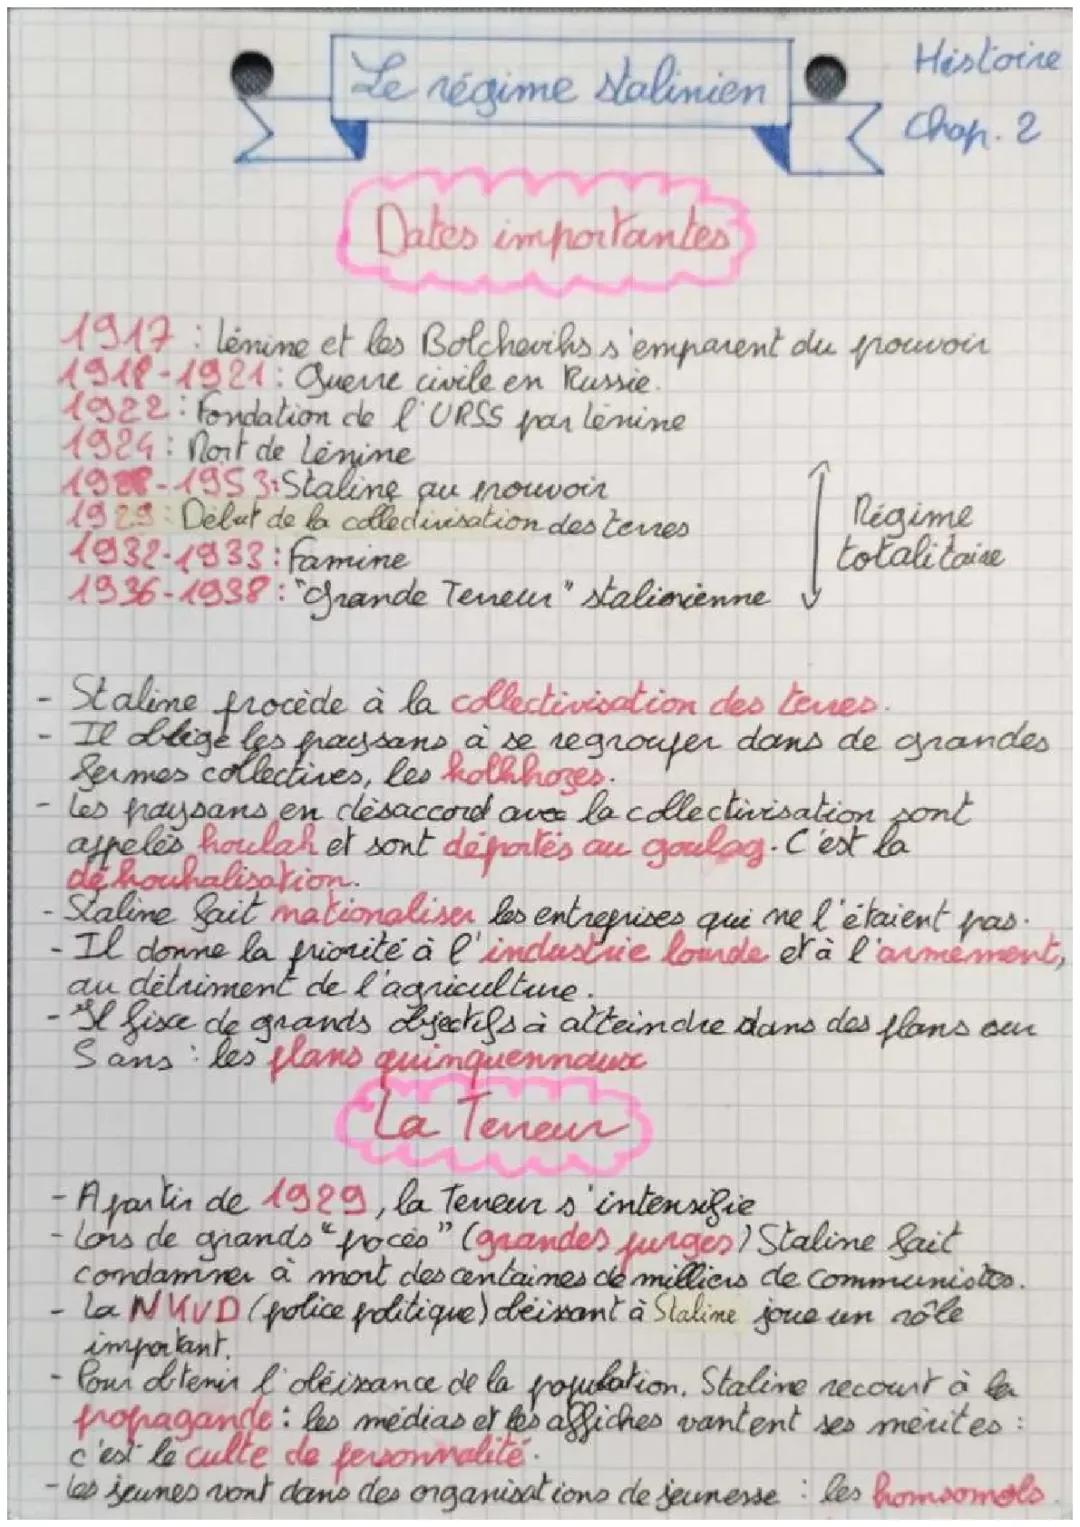 Le régime stalinien
Histoire
Chap. 2
Dates importantes
1917 : Lénine et les Bolcheviks s'emparent du pouvoir
1918-1921 : Guerre civile en Russie.
1922 : Fondation de l'URSS par Lénine
1924 : Mort de Lénine
1928-1953 : Staline au pouvoir
1929 : Début de la collectivisation des terres
1932-1933 : Famine
1936-1938 : "Grande Terreur" stalinienne
Régime
totalitaire
- Staline procède à la collectivisation des terres.
- Il oblige les paysans à se regrouper dans de grandes
fermes collectives, les kolkhozes.
- Les paysans en désaccord avec la collectivisation sont
appelés koulak et sont déportés au goulag. C'est la
dékoukalisation.
- Staline fait nationaliser les entreprises qui ne l'étaient pas.
- Il donne la priorité à l'industrie lourde et à l'armement,
au détriment de l'agriculture.
- Il fixe de grands objectifs à atteindre dans des plans sur
5 ans : les plans quinquennaux
La Terreur
- A partir de 1929, la Terreur s'intensifie
- Lors de grands "procès" (grandes purges) Staline fait
condamner à mort des centaines de milliers de communistes.
- La NKVD (police politique) obéissant à Staline joue un rôle
important.
- Pour obtenir l'obéissance de la population, Staline recourt à la
propagande : les médias et les affiches vantent ses mérites :
c'est le culte de personnalité.
- Les jeunes vont dans des organisations de jeunesse : les komsomols.